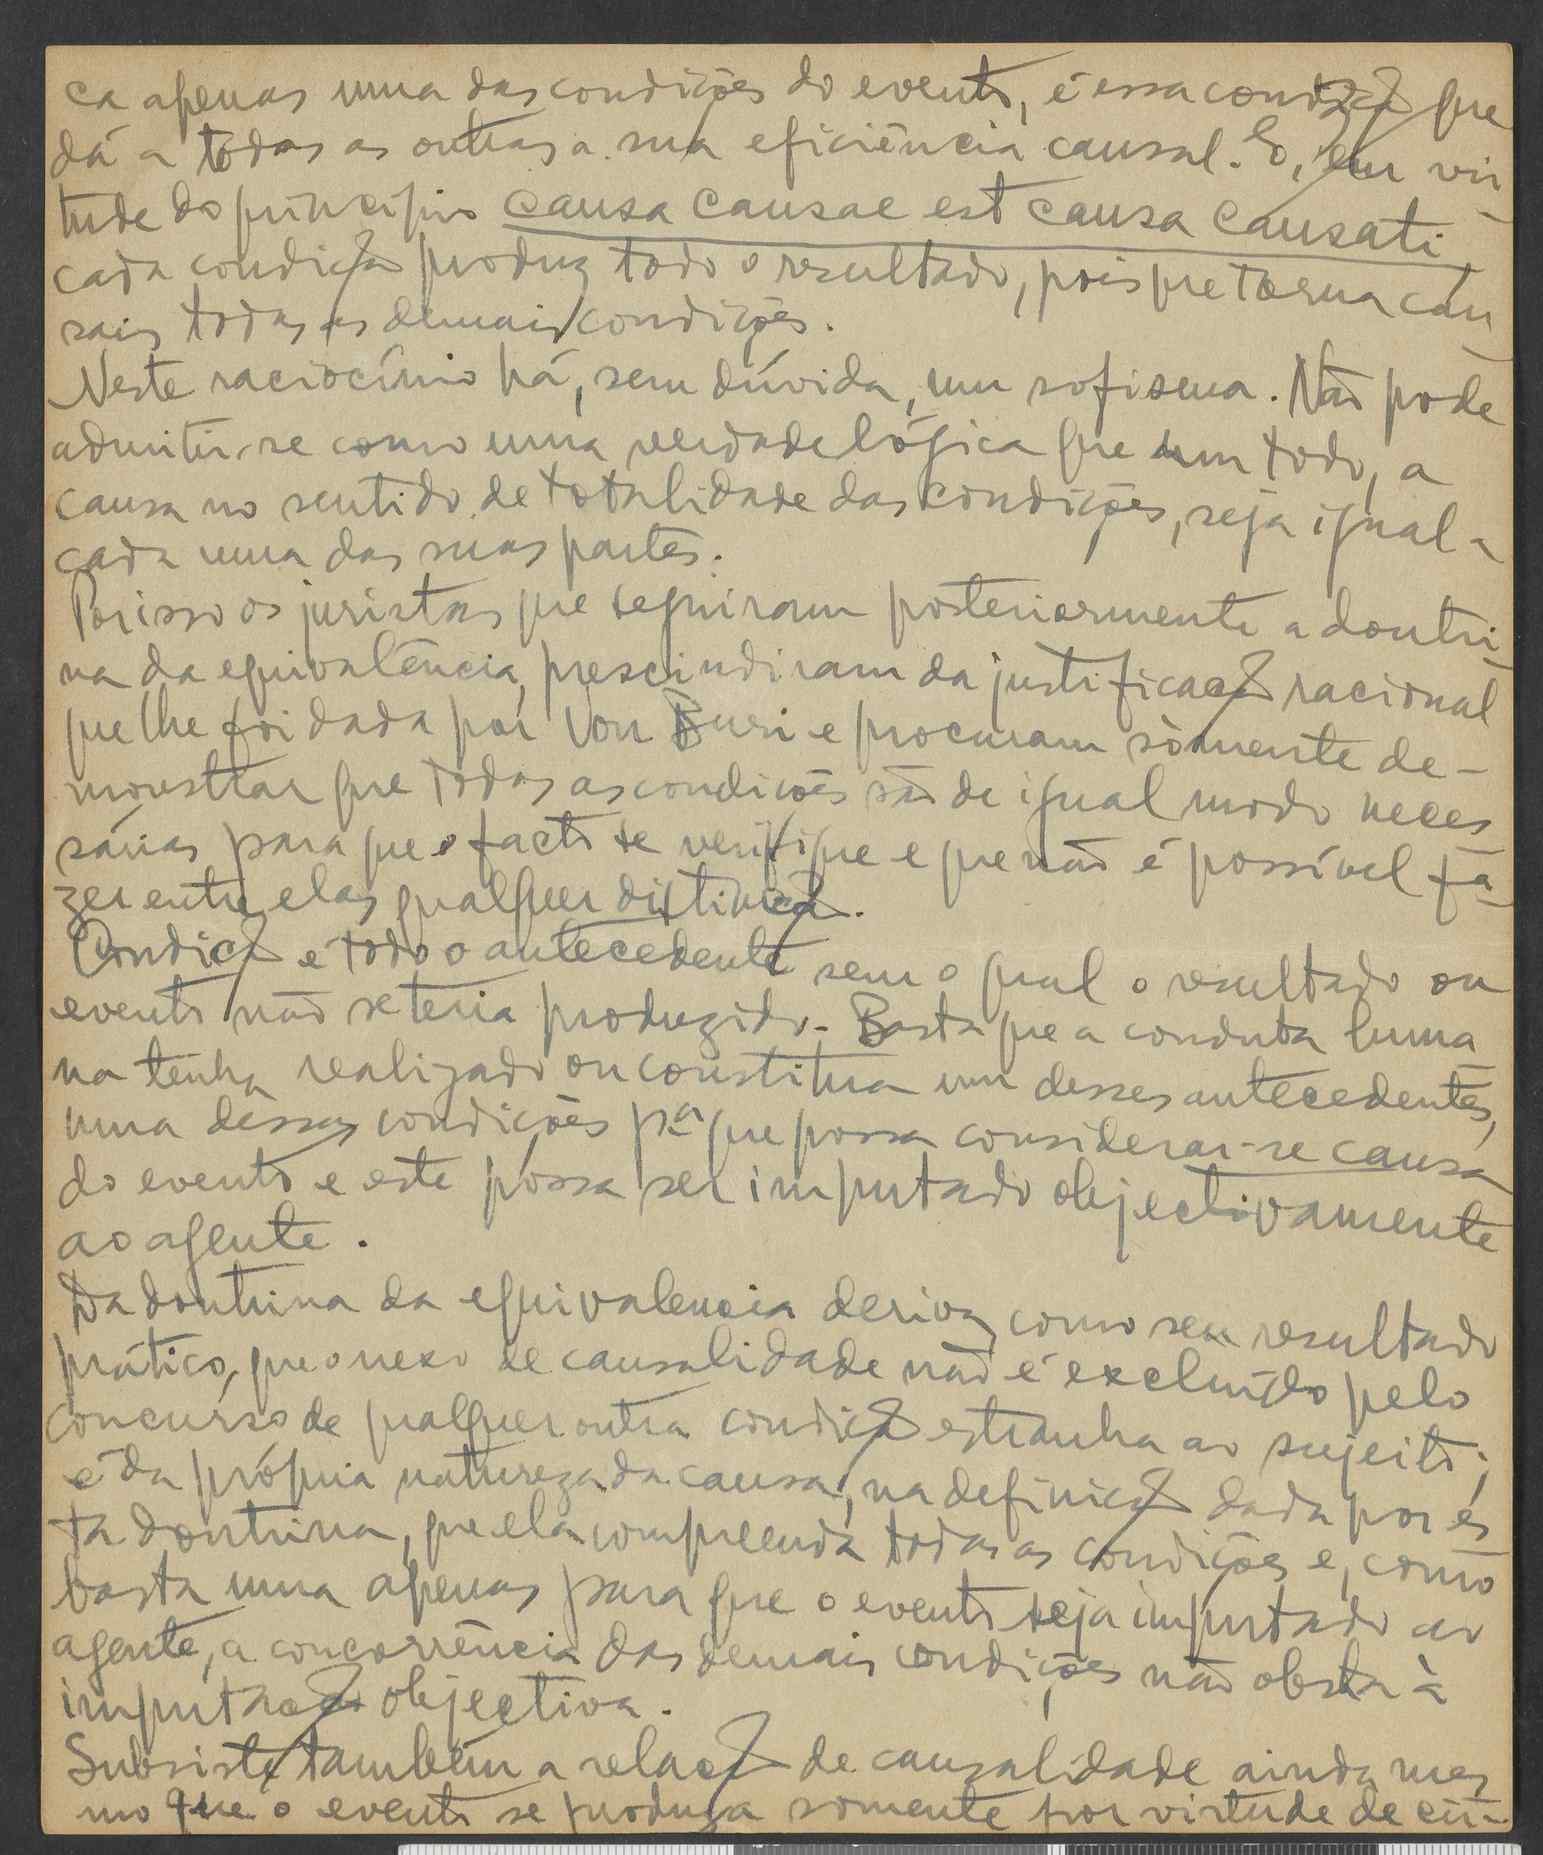 ca apenas uma das condições do evento, é essa condição que
dá a todas as outras a sua eficiência causal. E, em vir-
tude do princípio causa causae est causa causati
cada condição produz todo o resultado, pois que torna cau-
sais todas as demais condições.
Neste raciocínio há, sem dúvida, um sofisma. Não pode
admitir-se como uma verdade lógica que um todo, a
causa no sentido de totalidade das condições, seja igual a
cada uma das suas partes.
Porisso os juristas que seguiram posteriormente a doutri-
na da equivalência, prescindiram da justificação racional
que lhe foi dada por Von Buri e procuram sòmente de-
monstrar que todas as condições são de igual modo neces
sárias para que o facto se verifique e que não é possível fa-
zer entre elas qualquer distinção.
Condição é todo o antecedente sem o qual o resultado ou
evento não se teria produzido. Basta que a conduta huma-
na tenha realizado ou constitua um desses antecedentes,
uma dessas condições pª que possa considerar-se causa
do evento e este possa ser imputado objectivamente
ao agente.
Da doutrina da equivalencia deriva, como seu resultado
prático, que o nexo de causalidade não é excluído pelo
concurso de qualquer outra condição estranha ao sujeito;
é da própria natureza da causa, na definição dada por es-
ta doutrina, que ela compreenda todas as condições e, como
basta uma apenas para que o evento seja imputado ao
agente, a concorrência das demais condições não obsta à
imputação objectiva.
Subsiste também a relação de causalidade ainda mes
mo que o evento se produza somente por virtude de cir-